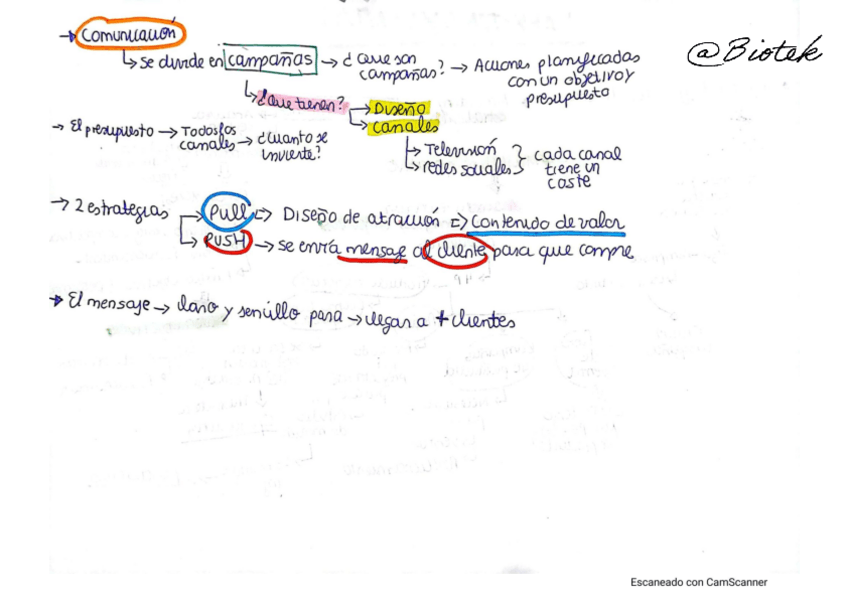 → Comunicación
↳ se divide en campañas → ¿Que son campañas? → Acciones planificadas con un objetivo y presupuesto
@Biotek
↳ ¿Que tienen? → Diseño
↳ canales
→ Televisión
↳ redes sociales } cada canal tiene un coste
→ El presupuesto → Todos los canales → ¿Cuanto se invierte?
→ 2 estrategias → Pull => Diseño de atracción => Contenido de valor
↳ PUSH → se envía mensaje al cliente para que compre
→ El mensaje → claro y sencillo para → llegar a + clientes
Escaneado con CamScanner